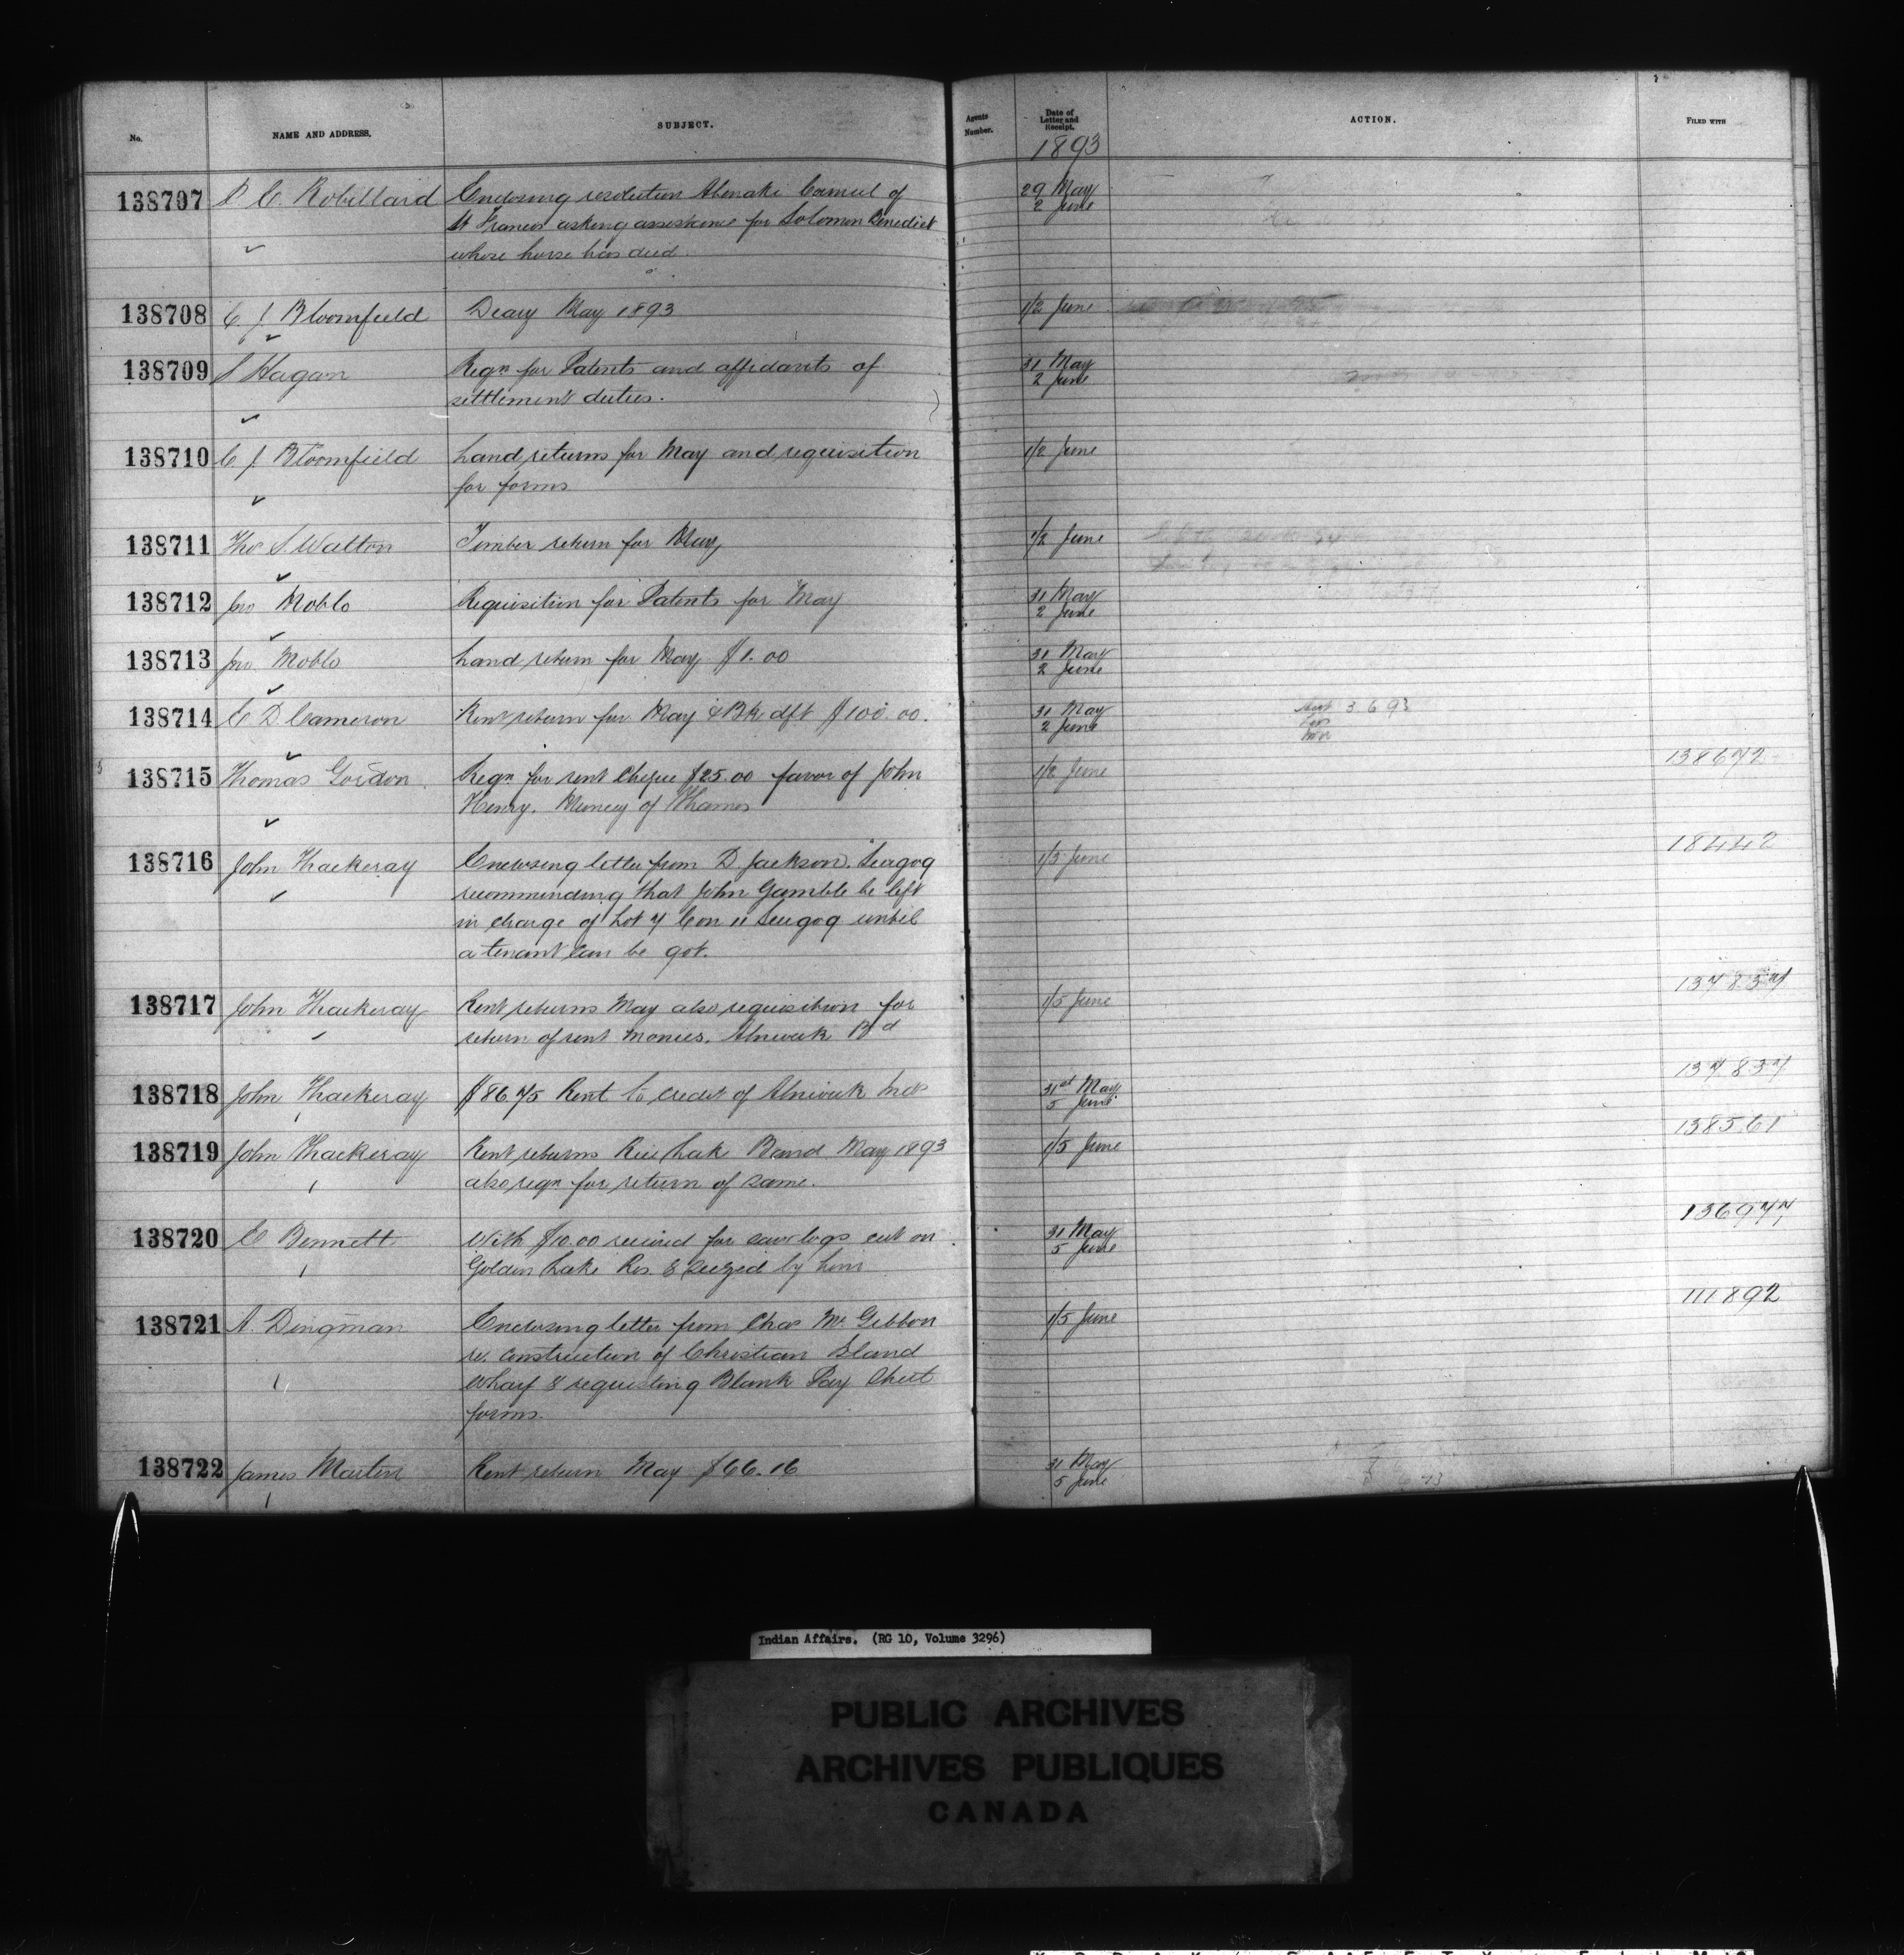 No. NAME AND ADDRESS. SUBJECT. Agents Number. Date of Letter and Receipt. ACTION. FILED WITH
1893
138707 P. E. Robillard Enclosing resolution Abenaki Council of 29 May
St Francis asking assistance for Solomon Benedict 2 June
whose horse has died.
138708 C J. Bloomfield Diary May 1893 1/2 June
138709 S Hagan Reqn for Patents and affidavits of 31 May
settlement duties. 2 June
138710 C J. Bloomfield Land returns for May and requisition 1/2 June
for forms
138711 Tho S. Walton Timber return for May 1/2 June
138712 Jno Noblo Requisition for Patents for May 31 May
2 June
138713 Jno. Moblo Land return for May $1.00 31 May
2 June
138714 E D. Cameron Rent return for May & Bk dft $100.00. 31 May 3 6 93
2 June
138715 Thomas Gordon Reqn for rent Cheque $25.00 favor of John 1/2 June 138672
Henry. Muncey of Thames
138716 John Thackeray Enclosing letter from D. Jackson. Scugog 1/5 June 18442
recommending that John Gamble be left
in charge of Lot 7 Con 11 Scugog until
a tenant can be got.
138717 John Thackeray Rent returns May also requisition for 1/5 June 137837
return of rent monies. Alnwick Bd
138718 John Thackeray $86.75 Rent to credit of Alnwick Inds 31st May 137837
5 June
138719 John Thackeray Rent returns Rice Lake Band May 1893 1/5 June 138561
also reqn for return of same.
138720 E Bennett With $10.00 received for saw logs cut on 31 May 136977
Golden Lake Res. & seized by him 5 June
138721 A. Dingman Enclosing letter from Chas Mc Gibbon 1/5 June 111892
re. construction of Christian Island
Wharf & requesting Blank Pay Sheet
forms.
138722 James Martin Rent return May $66.16 31 May
5 June
Indian Affairs. (RG 10, Volume 3296)
PUBLIC ARCHIVES
ARCHIVES PUBLIQUES
CANADA